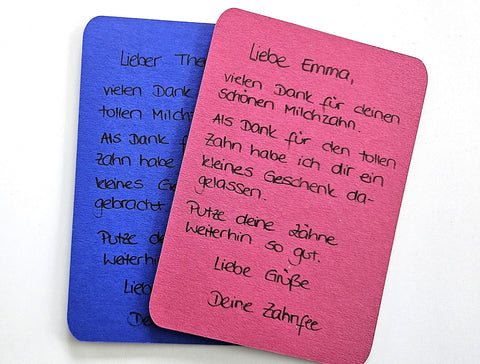 Lieber The
vielen Dank
tollen Milchz
Als Dank f
Zahn habe
kleines Ge
gebracht.
Putze de
Weiterhin
Lieb
De
Liebe Emma,
vielen Dank für deinen
schönen Milchzahn.
Als Dank für den tollen
Zahn habe ich dir ein
kleines Geschenk da-
gelassen.
Putze deine Zähne
Weiterhin so gut.
Liebe Grüße
Deine Zahnfee